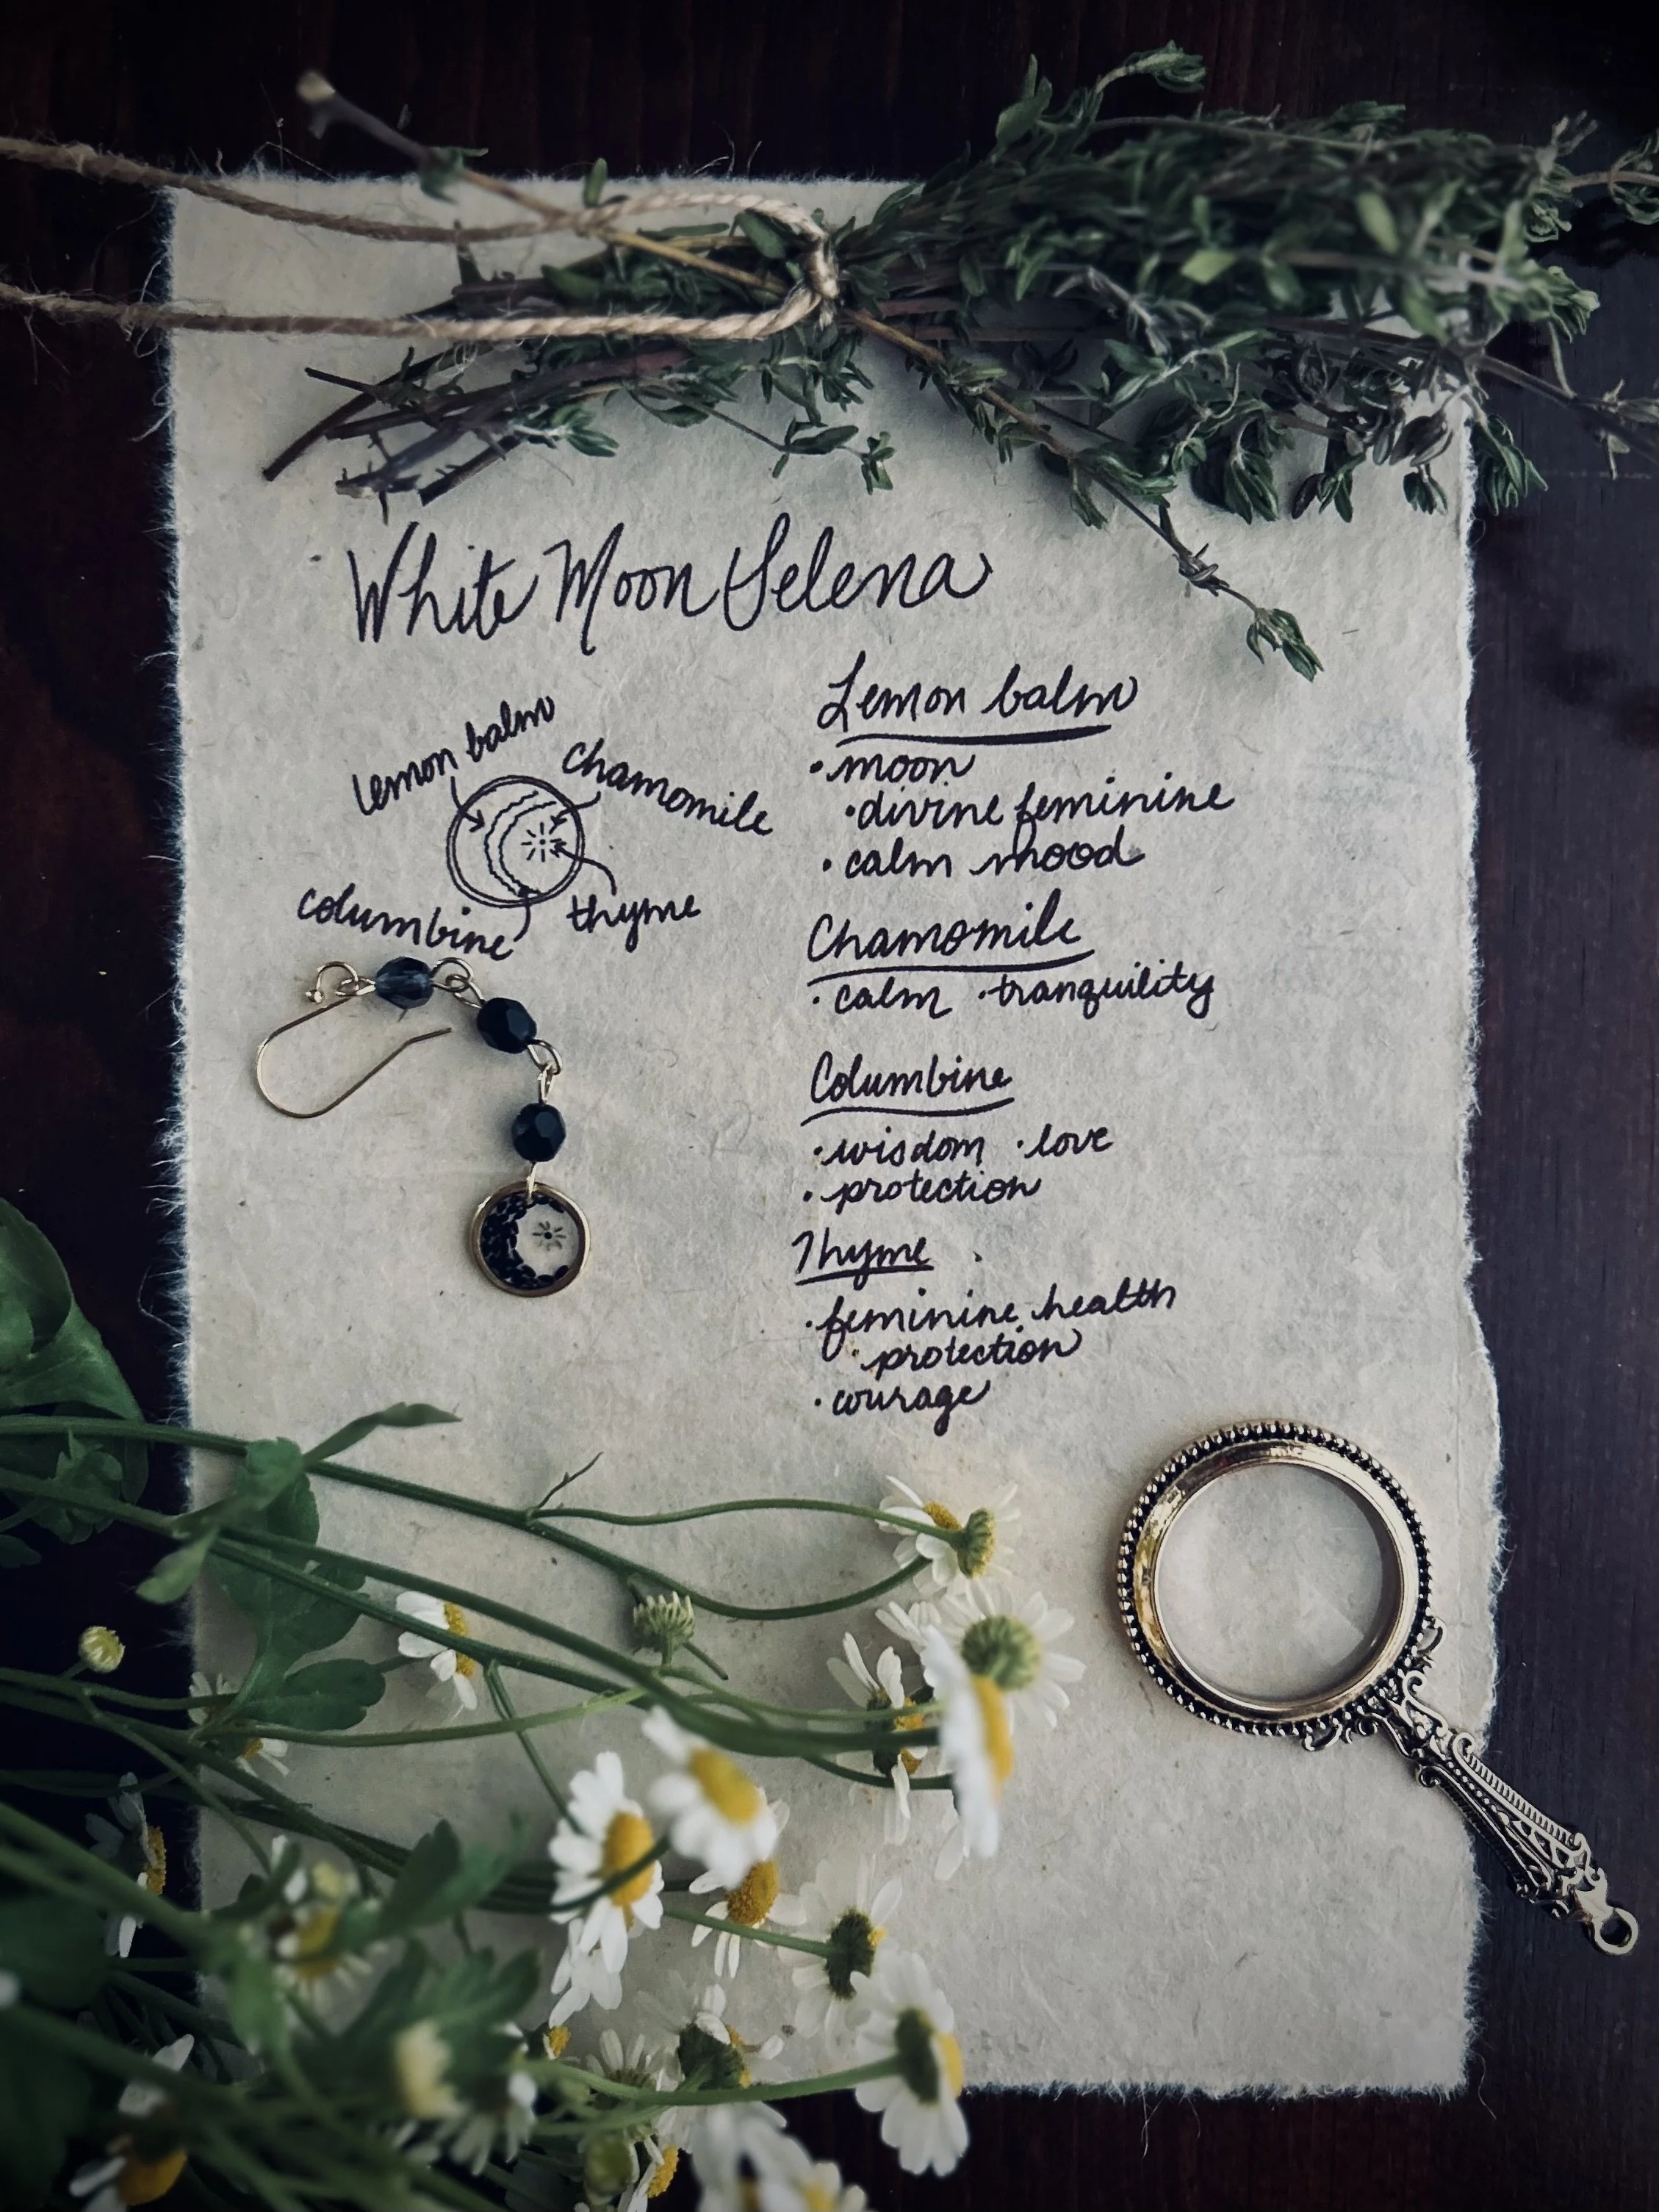 White Moon Selena
lemon balm
chamomile
columbine
thyme
Lemon balm
• moon
• divine feminine
• calm mood
Chamomile
• calm • tranquility
Columbine
• wisdom • love
• protection
Thyme
• feminine health
• protection
• courage